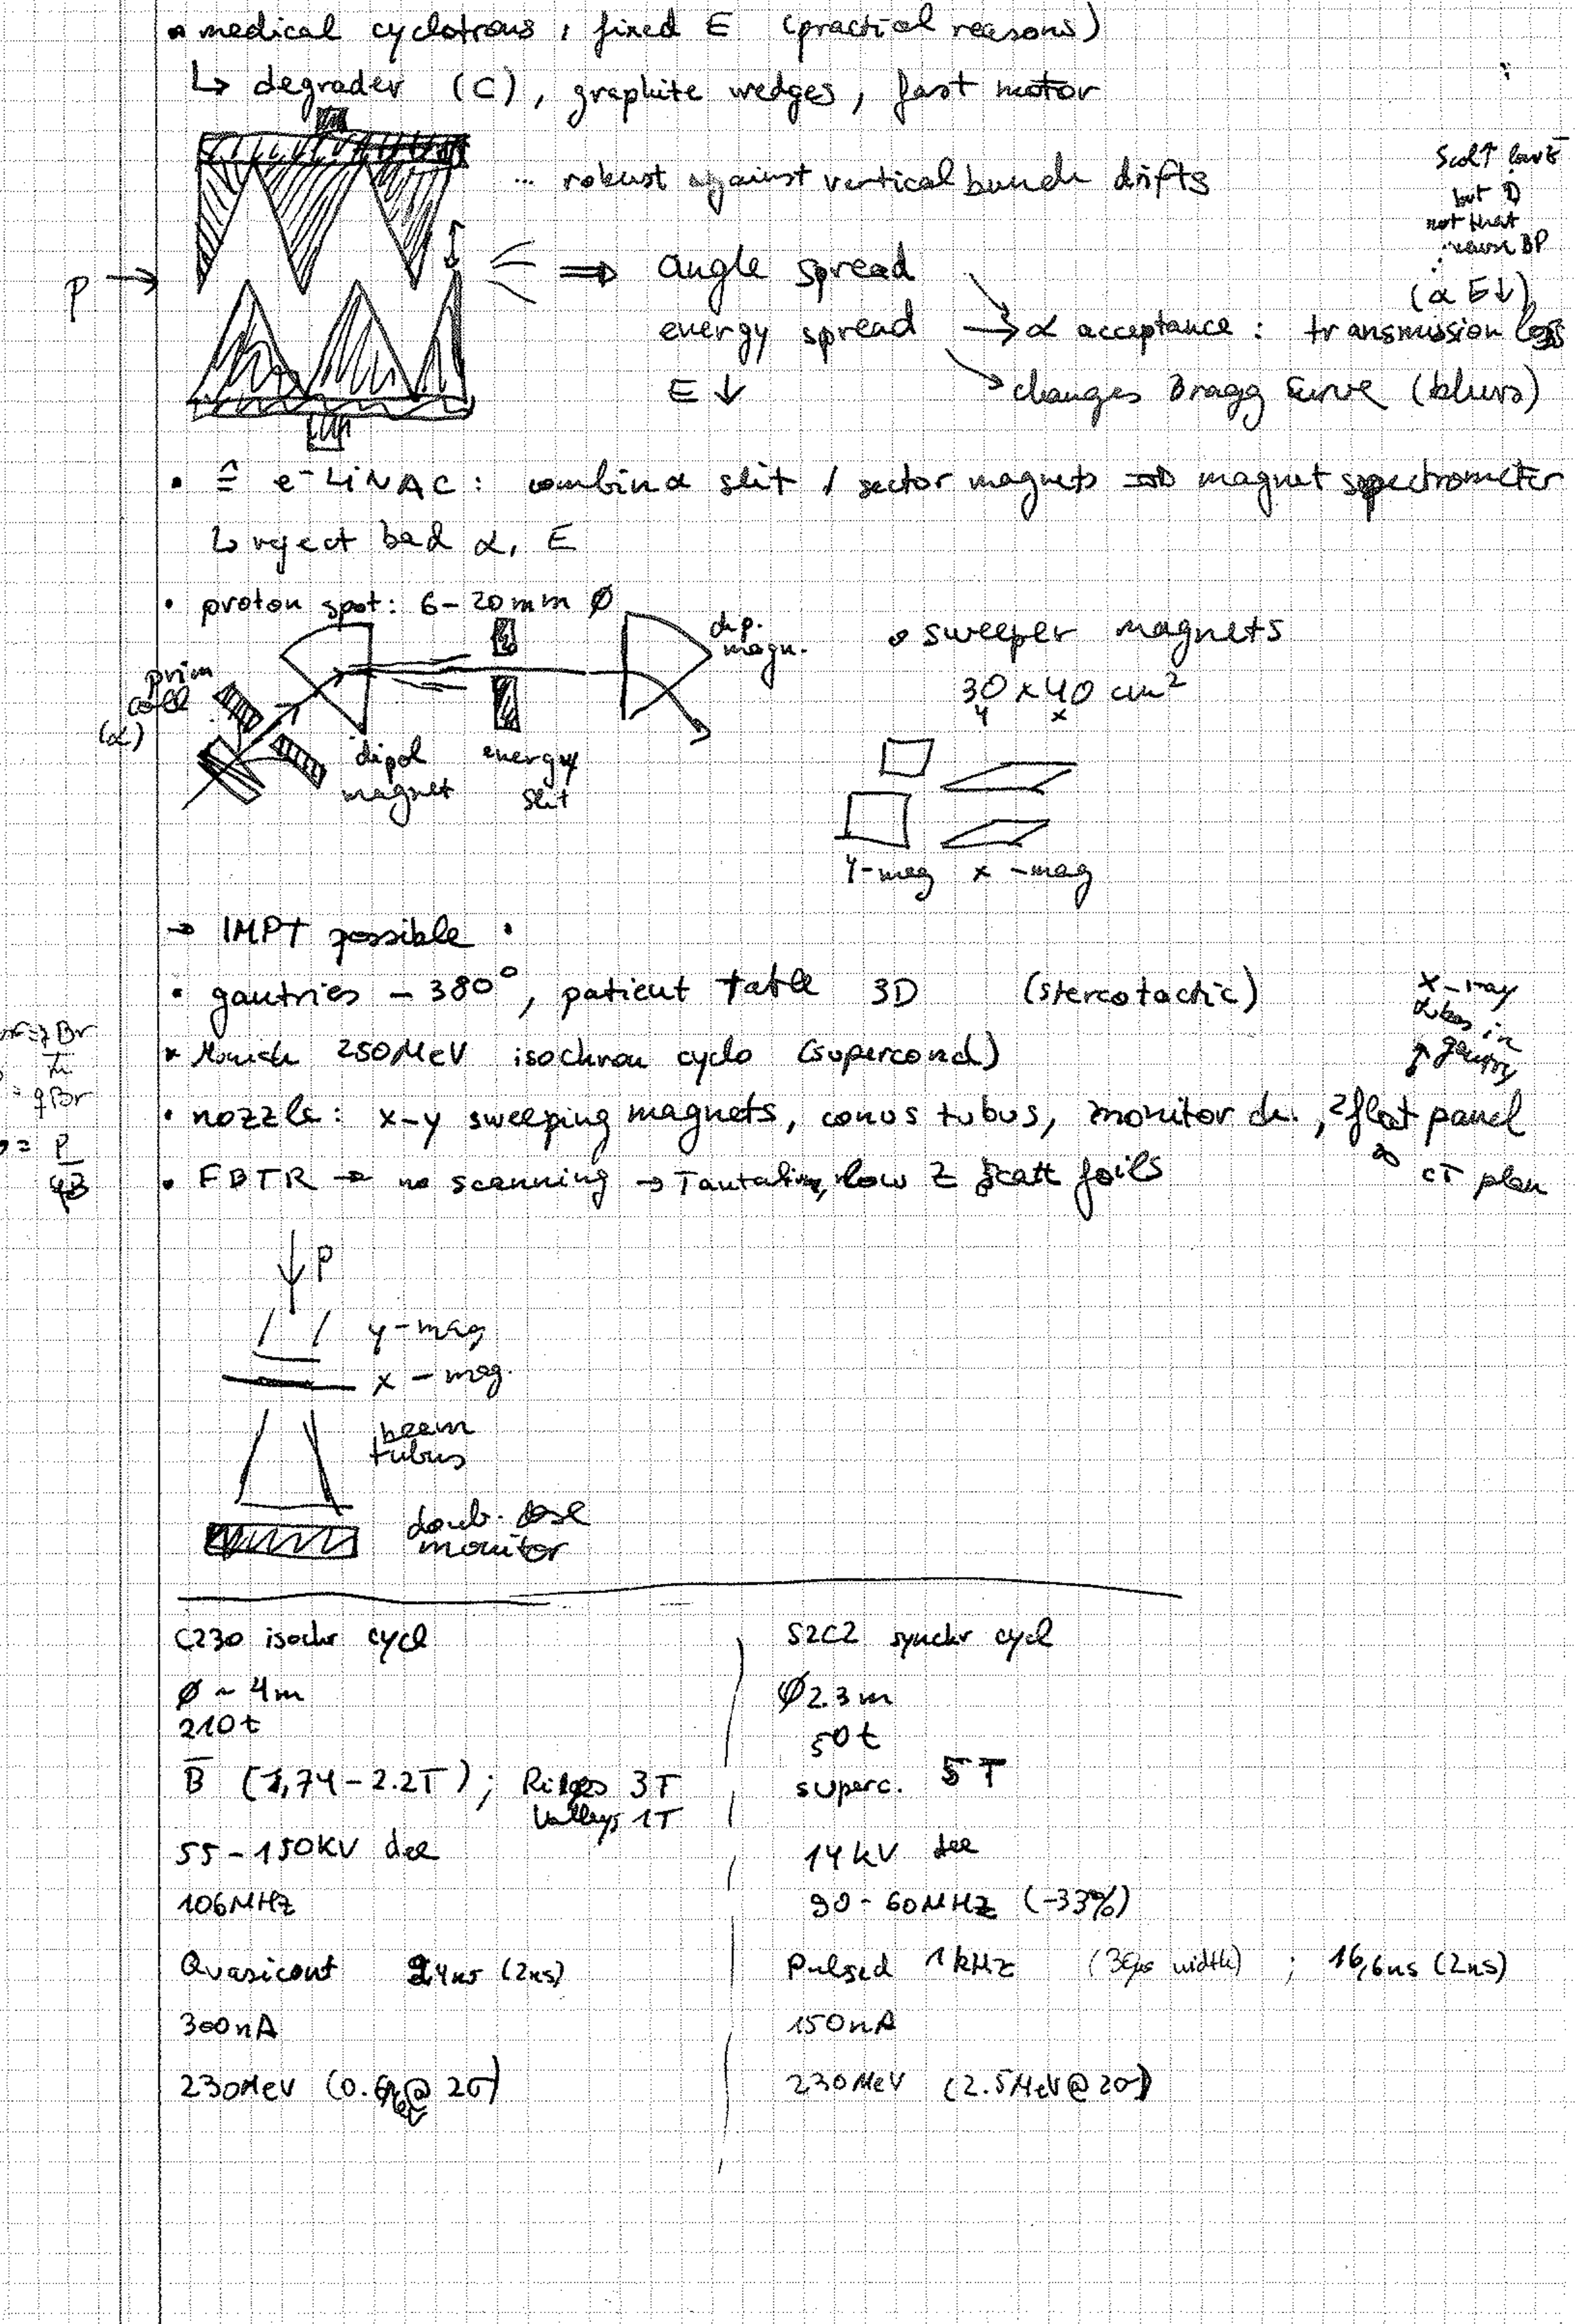 medical cyclotrons, fixed E (practical reasons)
↳ degrader (C), graphite wedges, fast motor
... robust against vertical bunch drifts
Scat↑ low E
but
not that
BP
(α E↓)
p →
⇒ angle spread
energy spread → α acceptance: transmission loss
E ↓
→ changes Bragg curve (blurs)
• ≙ e⁻ LiNAC: combin α slit / sector magnets ⇒ magnet spectrometer
↳ reject bad α, E
• proton spot: 6-20mm Ø
dip.
magn.
prim
coll
(α)
dipol
magnet
energy
slit
• sweeper magnets
30 x 40 cm²
y x
y-mag x-mag
→ IMPT possible
• gantries - 380°, patient table 3D (stereotactic)
x-ray
tubes in
↑ gantry
* Munich 250MeV isochron cyclo (supercond)
• nozzle: x-y sweeping magnets, conus tubus, monitor ch., 2 flat panel
∞ CT plan
• FBTR → no scanning → Tantalum, low Z scatt foils
Br
= qBr
= p
qB
↓ p
y-mag
x-mag.
beam
tubus
doub. dose
monitor
C230 isochr cycl
Ø ~ 4m
210t
B̅ (1,74-2.2T); Ridges 3T
Valleys 1T
55-150kV dee
106MHz
Quasicont 9.4ns (2ns)
300nA
230MeV (0.6 MeV @ 2σ)
S2C2 synchr cycl
Ø2.3m
50t
superc. 5T
14kV dee
90-60MHz (-33%)
Pulsed 1kHz (30µs width) ; 16,6ns (2ns)
150nA
230MeV (2.5MeV@2σ)